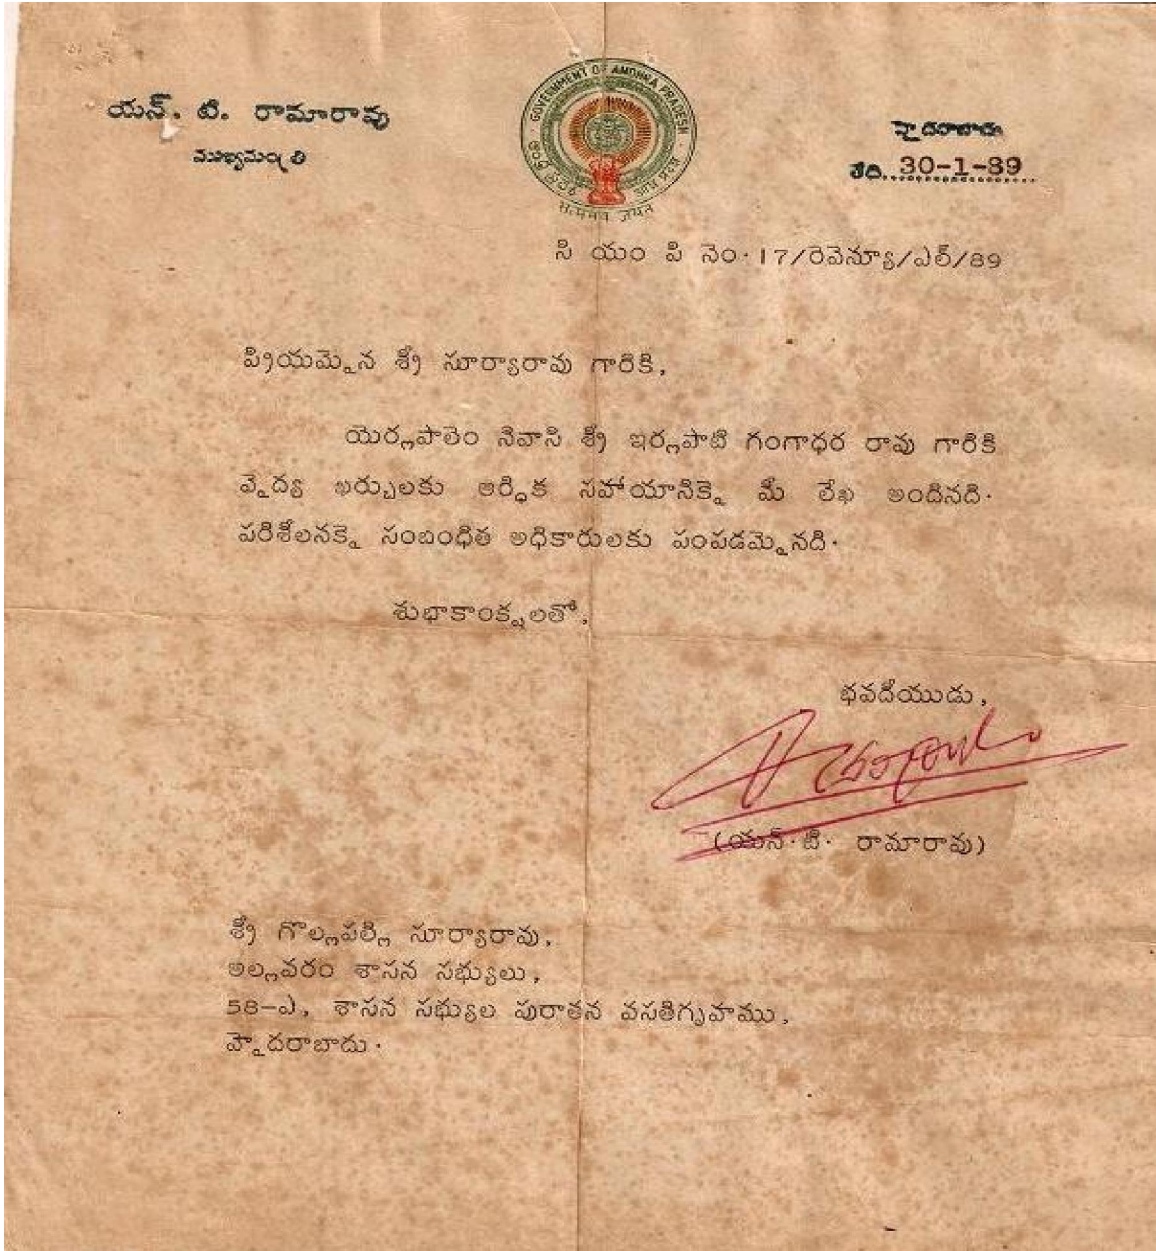 యన్. టి. రామారావు
ముఖ్యమంత్రి
GOVERNMENT OF ANDHRA PRADESH
హైదరాబాదు
తేది..30-1-89
సి యం పి నెం. 17/రెవెన్యూ/ఎల్/89
ప్రియమైన శ్రీ సూర్యారావు గారికి,
యెర్లపాలెం నివాసి శ్రీ ఇర్లపాటి గంగాధర రావు గారికి
వైద్య ఖర్చులకు ఆర్ధిక సహాయానికై మీ లేఖ అందినది.
పరిశీలనకై సంబంధిత అధికారులకు పంపడమైనది.
శుభాకాంక్షలతో,
భవదీయుడు,
(యన్.టి. రామారావు)
శ్రీ గొల్లపల్లి సూర్యారావు,
అల్లవరం శాసన సభ్యులు,
58-ఎ, శాసన సభ్యుల పురాతన వసతిగృహము,
హైదరాబాదు.